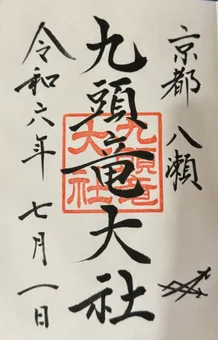 京都 八瀬
九頭竜大社
令和六年 七月 一日
九頭竜
大社